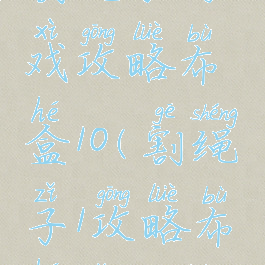 xì gōng lüè bù
戏攻略布
hé gē shéng
盒10(割绳
zǐ gōng lüè bù
子1攻略布